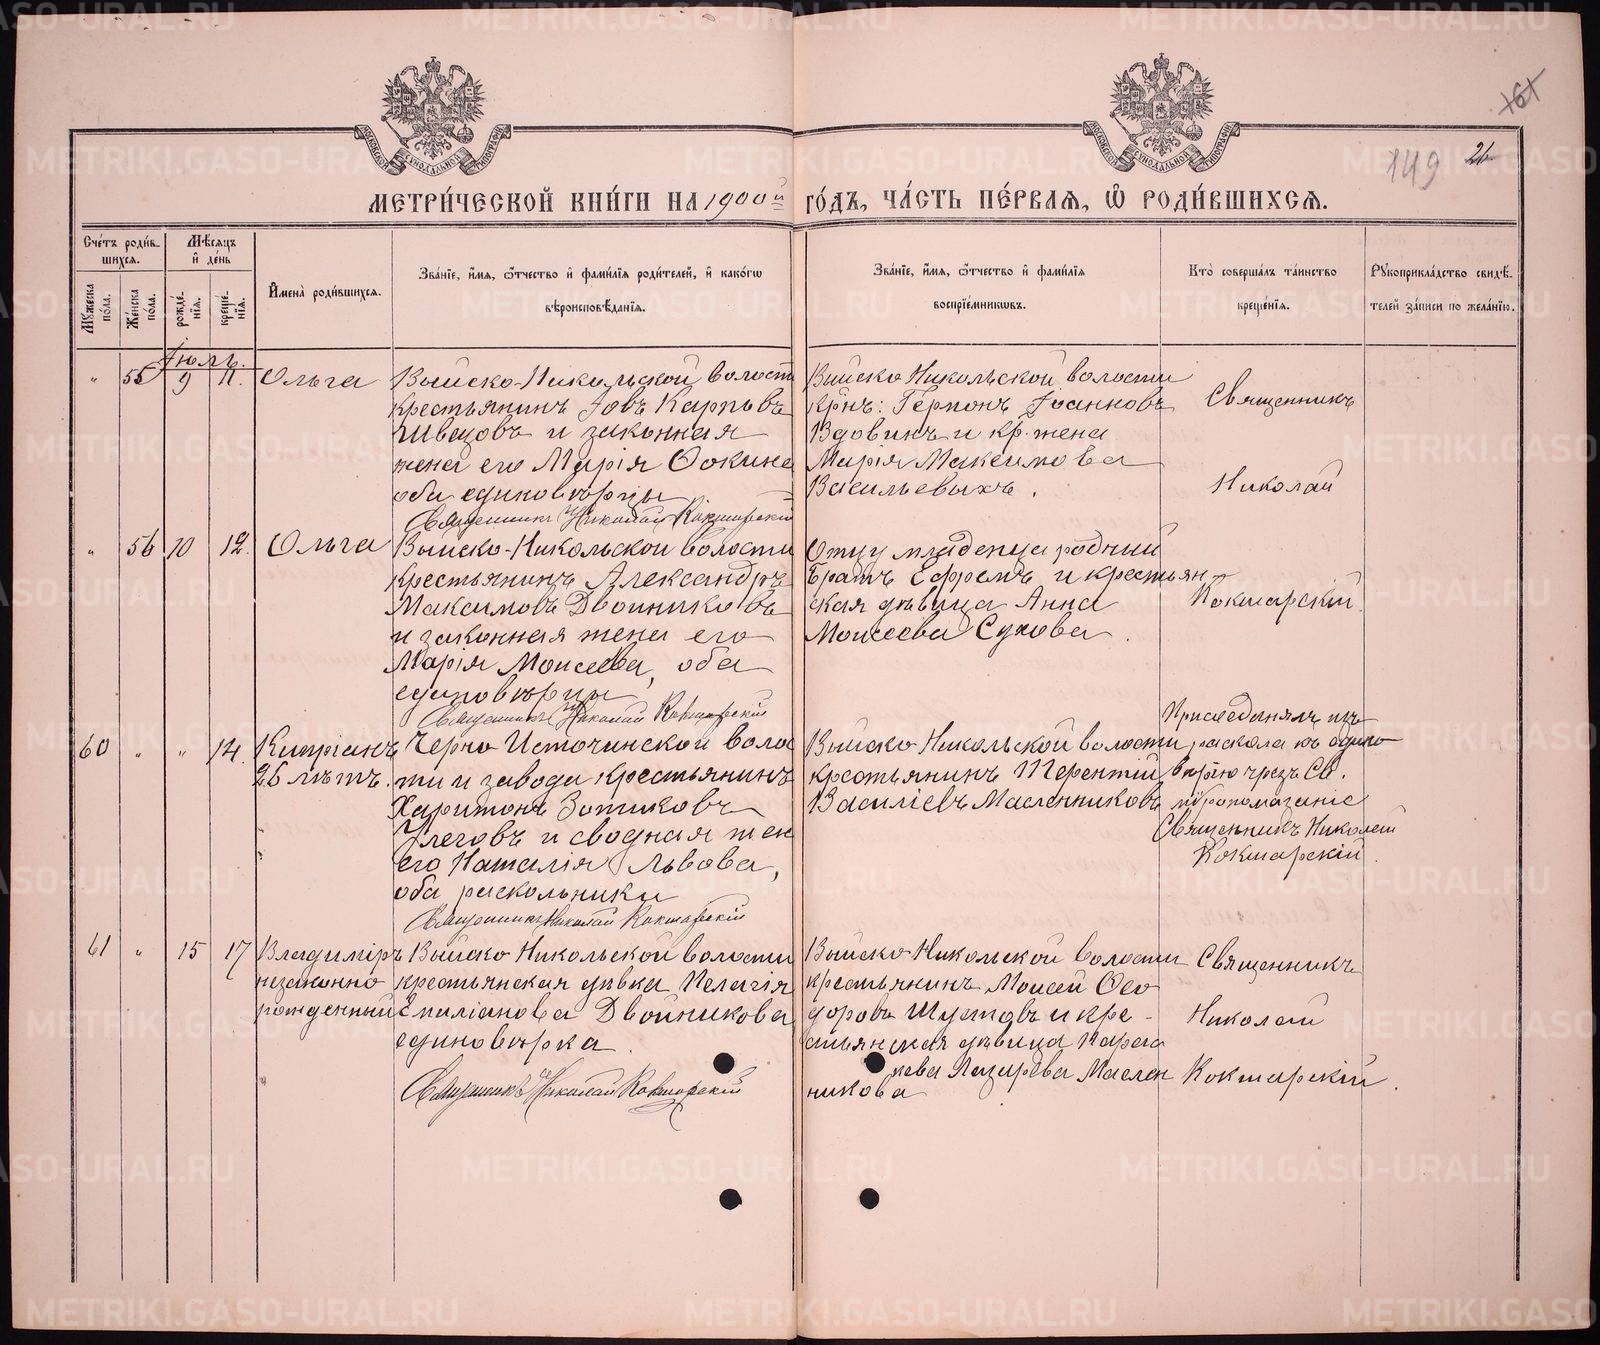 МЕТРИ́ЧЕСКОЙ КНИ́ГИ НА 1900й ГО́ДЪ, ЧА́СТЬ ПЕ́РВАѦ, Ѽ РОДИ́ВШИХСѦ.
149 26
Сче́тъ роди́в-
шихсѧ.
Мѣ́сѧцъ
и де́нь
Мꙋжеска по́ла.
Же́нска по́ла.
рожде́-
нїѧ.
креще́-
нїѧ.
И҆мена̀ роди́вшихсѧ.
Зва́нїе, и҆́мѧ, ѻ҆́тчество и҆ фами́лїѧ роди́телей, и҆ како́гѡ
вѣроисповѣ́данїѧ.
Зва́нїе, и҆́мѧ, ѻ҆́тчество и҆ фами́лїѧ
воспрїе́мникѡвъ.
Кто̀ соверша́лъ та́инство
креще́нїѧ.
Рꙋкоприкла́дство свидѣ́-
телей за́писи по жела́нїю.
Іюль.
" 55 9 11. Ольга
Выйско-Никольской волости
крестьянинъ Іовъ Карповъ
Швецовъ и законная
жена его Марія Фокина
оба единовѣрцы.
Священникъ Николай Кокшарскій
Выйско Никольской волости
крнъ: Герм
онъ Іоанновъ
Вдовинъ и кр. жена
Марія Максимова
Васильевыхъ.
Священникъ
Николай
Кокшарскій
" 56 10 12. Ольга
Выйско-Никольской волости
крестьянинъ Александръ
Максимовъ Двойниковъ
и законная жена его
Марія Моисеева, оба
единовѣрцы
Священникъ Николай Кокшарскій
Отцу младенца родный
братъ Ефремъ и крестьян
ская дѣвица Анна
Моисеева Сухова.
60 " " 14. Кипріанъ
26 лѣтъ.
Черно Источинской волос
ти и завода крестьянинъ
Харитонъ Зотиковъ
Улеговъ и сводная жен
его Наталія Львова,
оба раскольники
Священникъ Николай Кокшарскій
Выйско Никольской волости
крестьянинъ Терентій
Василіевъ Масленниковъ
Присоединялъ изъ
раскола къ едино
вѣрію чрезъ Св.
мѵропомазаніе
Священникъ Николай
Кокшарскій.
61 " 15 17 Владиміръ
незаконно
рожденный
Выйско Никольской волости
крестьянская дѣвка Пелагія
Емиліанова Двойникова
единовѣрка.
Священникъ Николай Кокшарскій
Выйско Никольской волости
крестьянинъ Моисей Фео
доровъ Шустовъ и кре-
стьянская дѣвица Параc
кева Лазарева Маслен
никова
Священникъ
Николай
Кокшарскій.
METRIKI.GASO-URAL.RU